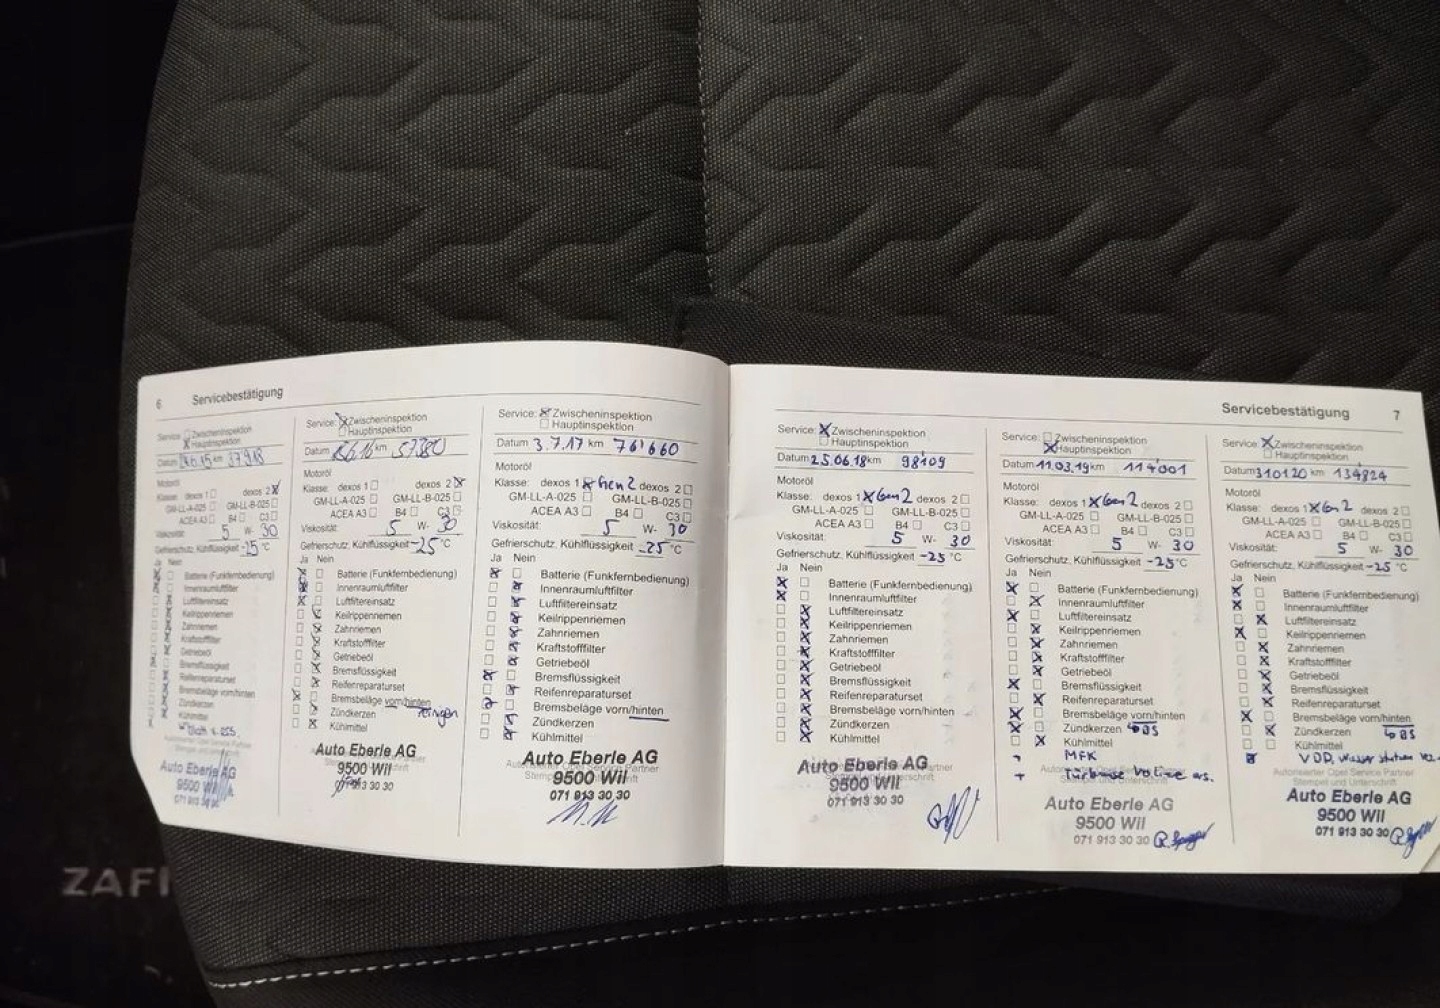 6 Servicebestätigung
Service: Zwischeninspektion
Hauptinspektion
Datum km 37918
Motoröl
Klasse: dexos 1 dexos 2
GM-LL-A-025 GM-LL-B-025
ACEA A3 B4 C3
Viskosität: 5 W- 30
Gefrierschutz, Kühlflüssigkeit -25 °C
Ja Nein
Batterie (Funkfernbedienung)
Innenraumluftfilter
Luftfiltereinsatz
Keilrippenriemen
Zahnriemen
Kraftstofffilter
Getriebeöl
Bremsflüssigkeit
Reifenreparaturset
Bremsbeläge vorn/hinten
Zündkerzen
Kühlmittel
Auto Eberle AG
9500 Wil
071 913 30 30
Service: Zwischeninspektion
Hauptinspektion
Datum km 57380
Motoröl
Klasse: dexos 1 dexos 2
GM-LL-A-025 GM-LL-B-025
ACEA A3 B4 C3
Viskosität: 5 W- 30
Gefrierschutz, Kühlflüssigkeit -25 °C
Ja Nein
Batterie (Funkfernbedienung)
Innenraumluftfilter
Luftfiltereinsatz
Keilrippenriemen
Zahnriemen
Kraftstofffilter
Getriebeöl
Bremsflüssigkeit
Reifenreparaturset
Bremsbeläge vorn/hinten
Zündkerzen
Kühlmittel
Auto Eberle AG
9500 Wil
071 913 30 30
Service: Zwischeninspektion
Hauptinspektion
Datum 3.7.17 km 76'660
Motoröl
Klasse: dexos 1 Gen 2 dexos 2
GM-LL-A-025 GM-LL-B-025
ACEA A3 B4 C3
Viskosität: 5 W- 30
Gefrierschutz, Kühlflüssigkeit -25 °C
Ja Nein
Batterie (Funkfernbedienung)
Innenraumluftfilter
Luftfiltereinsatz
Keilrippenriemen
Zahnriemen
Kraftstofffilter
Getriebeöl
Bremsflüssigkeit
Reifenreparaturset
Bremsbeläge vorn/hinten
Zündkerzen
Kühlmittel
Auto Eberle AG
9500 Wil
071 913 30 30
Servicebestätigung 7
Service: Zwischeninspektion
Hauptinspektion
Datum 25.06.18 km 98109
Motoröl
Klasse: dexos 1 Gen 2 dexos 2
GM-LL-A-025 GM-LL-B-025
ACEA A3 B4 C3
Viskosität: 5 W- 30
Gefrierschutz, Kühlflüssigkeit -25 °C
Ja Nein
Batterie (Funkfernbedienung)
Innenraumluftfilter
Luftfiltereinsatz
Keilrippenriemen
Zahnriemen
Kraftstofffilter
Getriebeöl
Bremsflüssigkeit
Reifenreparaturset
Bremsbeläge vorn/hinten
Zündkerzen
Kühlmittel
Auto Eberle AG
9500 Wil
071 913 30 30
Service: Zwischeninspektion
Hauptinspektion
Datum 11.03.19 km 114001
Motoröl
Klasse: dexos 1 Gen 2 dexos 2
GM-LL-A-025 GM-LL-B-025
ACEA A3 B4 C3
Viskosität: 5 W- 30
Gefrierschutz, Kühlflüssigkeit -25 °C
Ja Nein
Batterie (Funkfernbedienung)
Innenraumluftfilter
Luftfiltereinsatz
Keilrippenriemen
Zahnriemen
Kraftstofffilter
Getriebeöl
Bremsflüssigkeit
Reifenreparaturset
Bremsbeläge vorn/hinten
Zündkerzen
Kühlmittel
MFK
Auto Eberle AG
9500 Wil
071 913 30 30
Service: Zwischeninspektion
Hauptinspektion
Datum 310120 km 134824
Motoröl
Klasse: dexos 1 Gen 2 dexos 2
GM-LL-A-025 GM-LL-B-025
ACEA A3 B4 C3
Viskosität: 5 W- 30
Gefrierschutz, Kühlflüssigkeit -25 °C
Ja Nein
Batterie (Funkfernbedienung)
Innenraumluftfilter
Luftfiltereinsatz
Keilrippenriemen
Zahnriemen
Kraftstofffilter
Getriebeöl
Bremsflüssigkeit
Reifenreparaturset
Bremsbeläge vorn/hinten
Zündkerzen
Kühlmittel
Autorisierter Opel Service Partner
Stempel und Unterschrift
Auto Eberle AG
9500 Wil
071 913 30 30
ZAFI